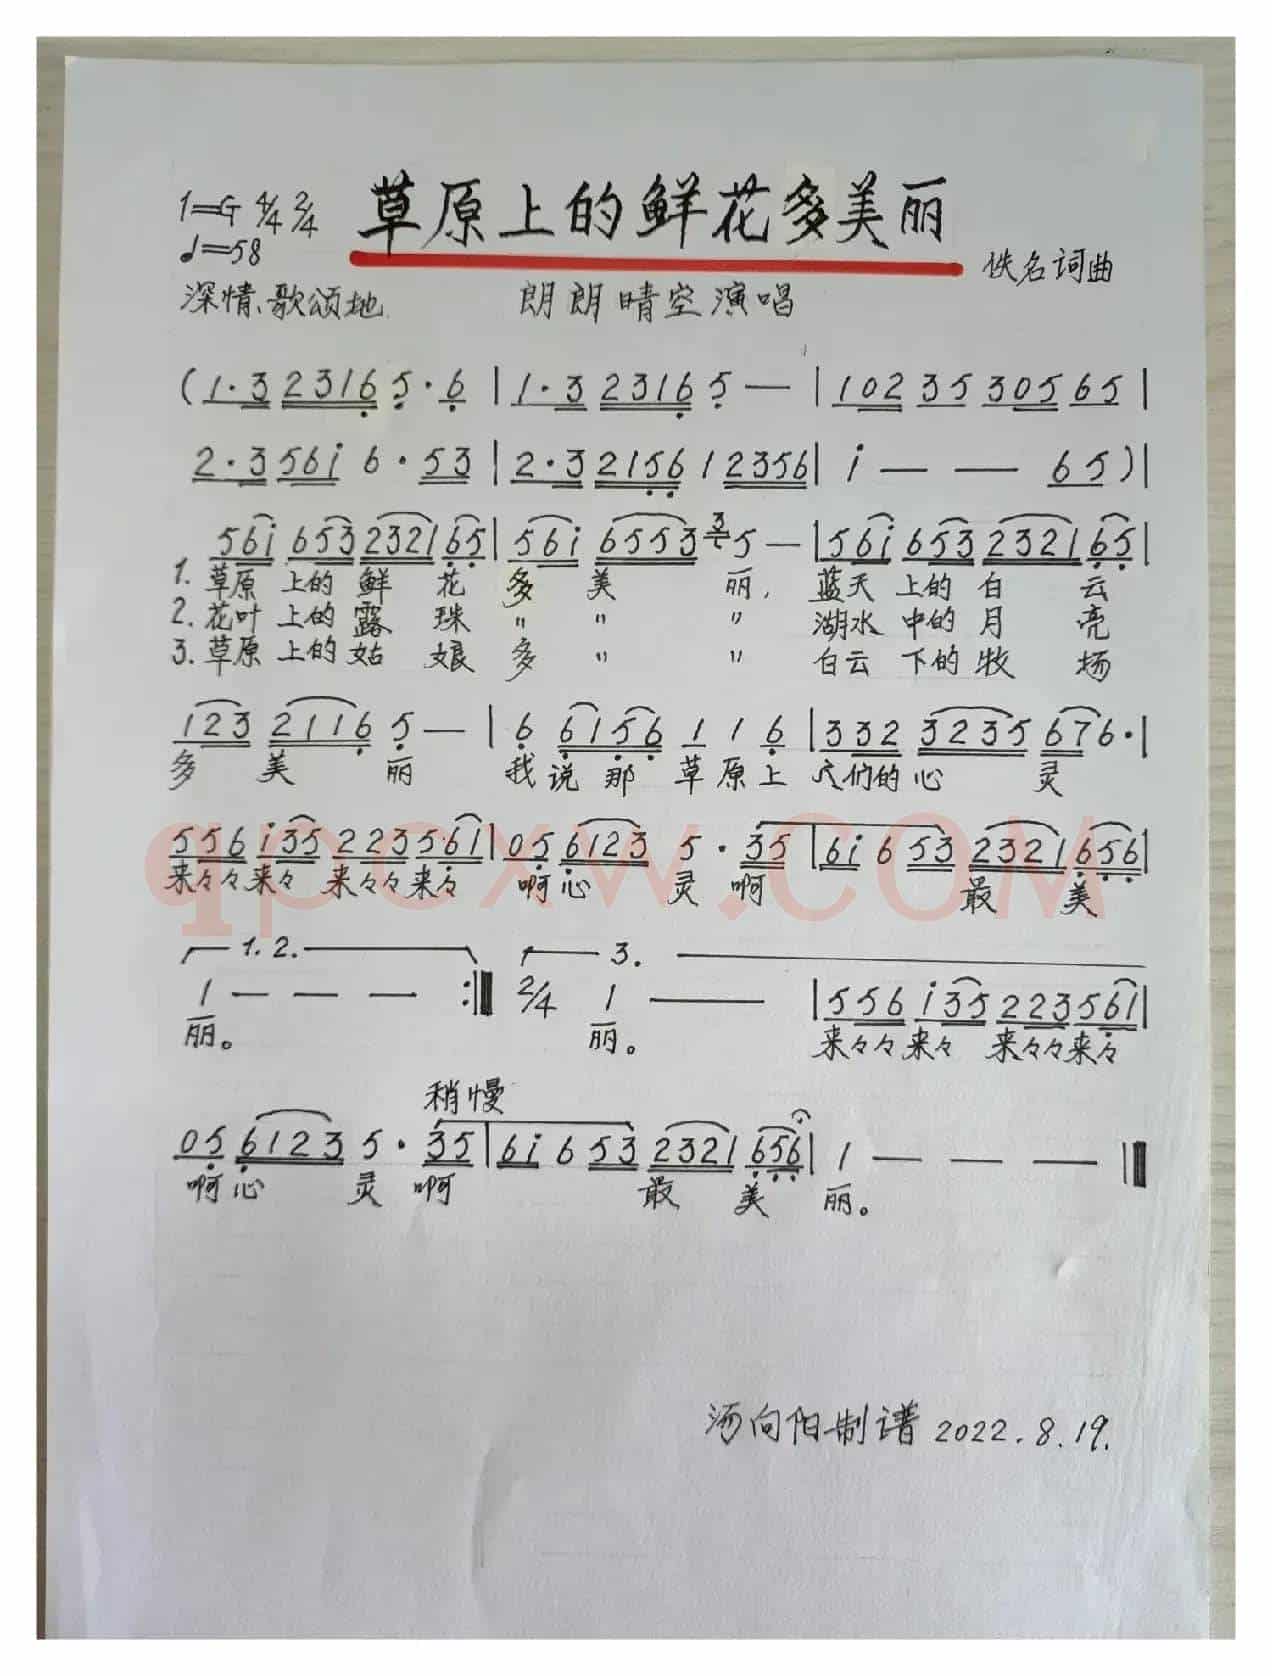 草原上的鲜花多美丽
1=G 4/4 2/4
♩=58
佚名词曲
深情、歌颂地 朗朗晴空演唱
(1·3 2316 5·6 | 1·3 2316 5 — | 102 35 305 65 |
2·3 56i 6·53 | 2·3 2156 1 2356 | i — — 65) |
56i 653 2321 65 | 56i 6553 3 5 — | 56i 653 2321 65 |
1. 草原 上的 鲜 花 多 美 丽, 蓝天 上的 白 云
2. 花叶 上的 露 珠 〃 〃 〃 湖水 中的 月 亮
3. 草原 上的 姑 娘 多 〃 〃 白云 下的 牧 场
123 2116 5 — | 6 6156 1 1 6 | 332 3235 676· |
多 美 丽 我 说 那 草 原 上 人们的 心 灵
556 i35 223 561 | 05 6123 5·35 | 6i 6 53 2321 656 |
来々々 来々 来々々 来々 啊 心 灵 啊 最 美
1. 2. 3.
1 — — — :‖ 2/4 1 — | 556 i35 223 561 |
丽。 丽。 来々々 来々 来々々 来々
稍慢
05 6123 5·35 | 6i 6 53 2321 656 | 1 — — — ‖
啊 心 灵 啊 最 美 丽。
汤向阳制谱 2022.8.19.
qpcxw.COM